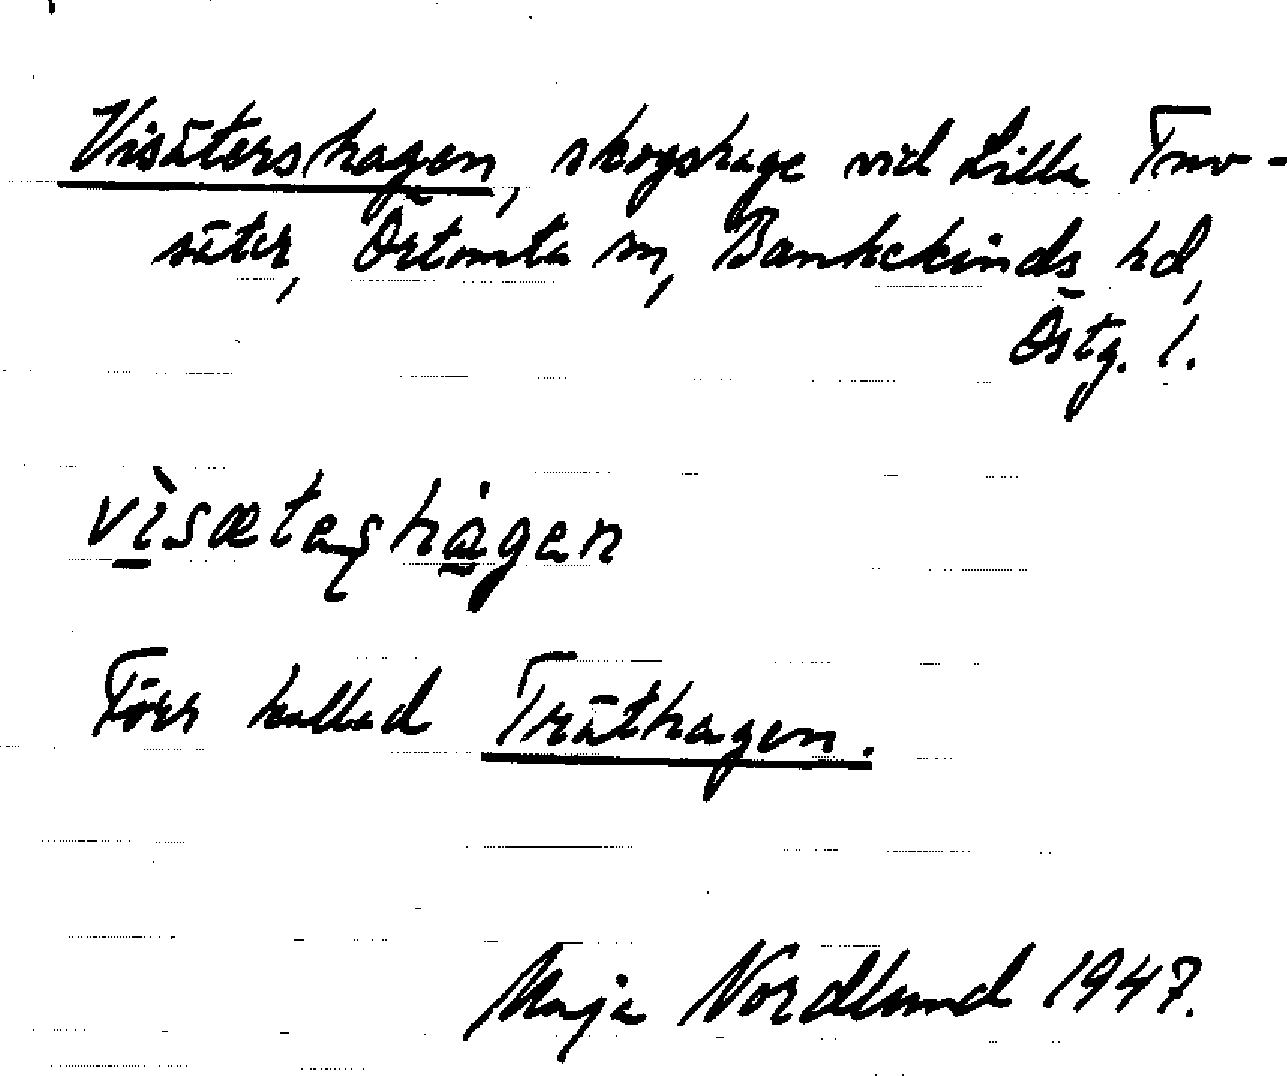 Visätershagen, skogshage vid Lilla Tuv-
säter, Örtomta sn, Bankekinds hd,
Östg. l.
vìsæteshågen
Förr kallad Träthagen.
Maja Nordlund 1947.